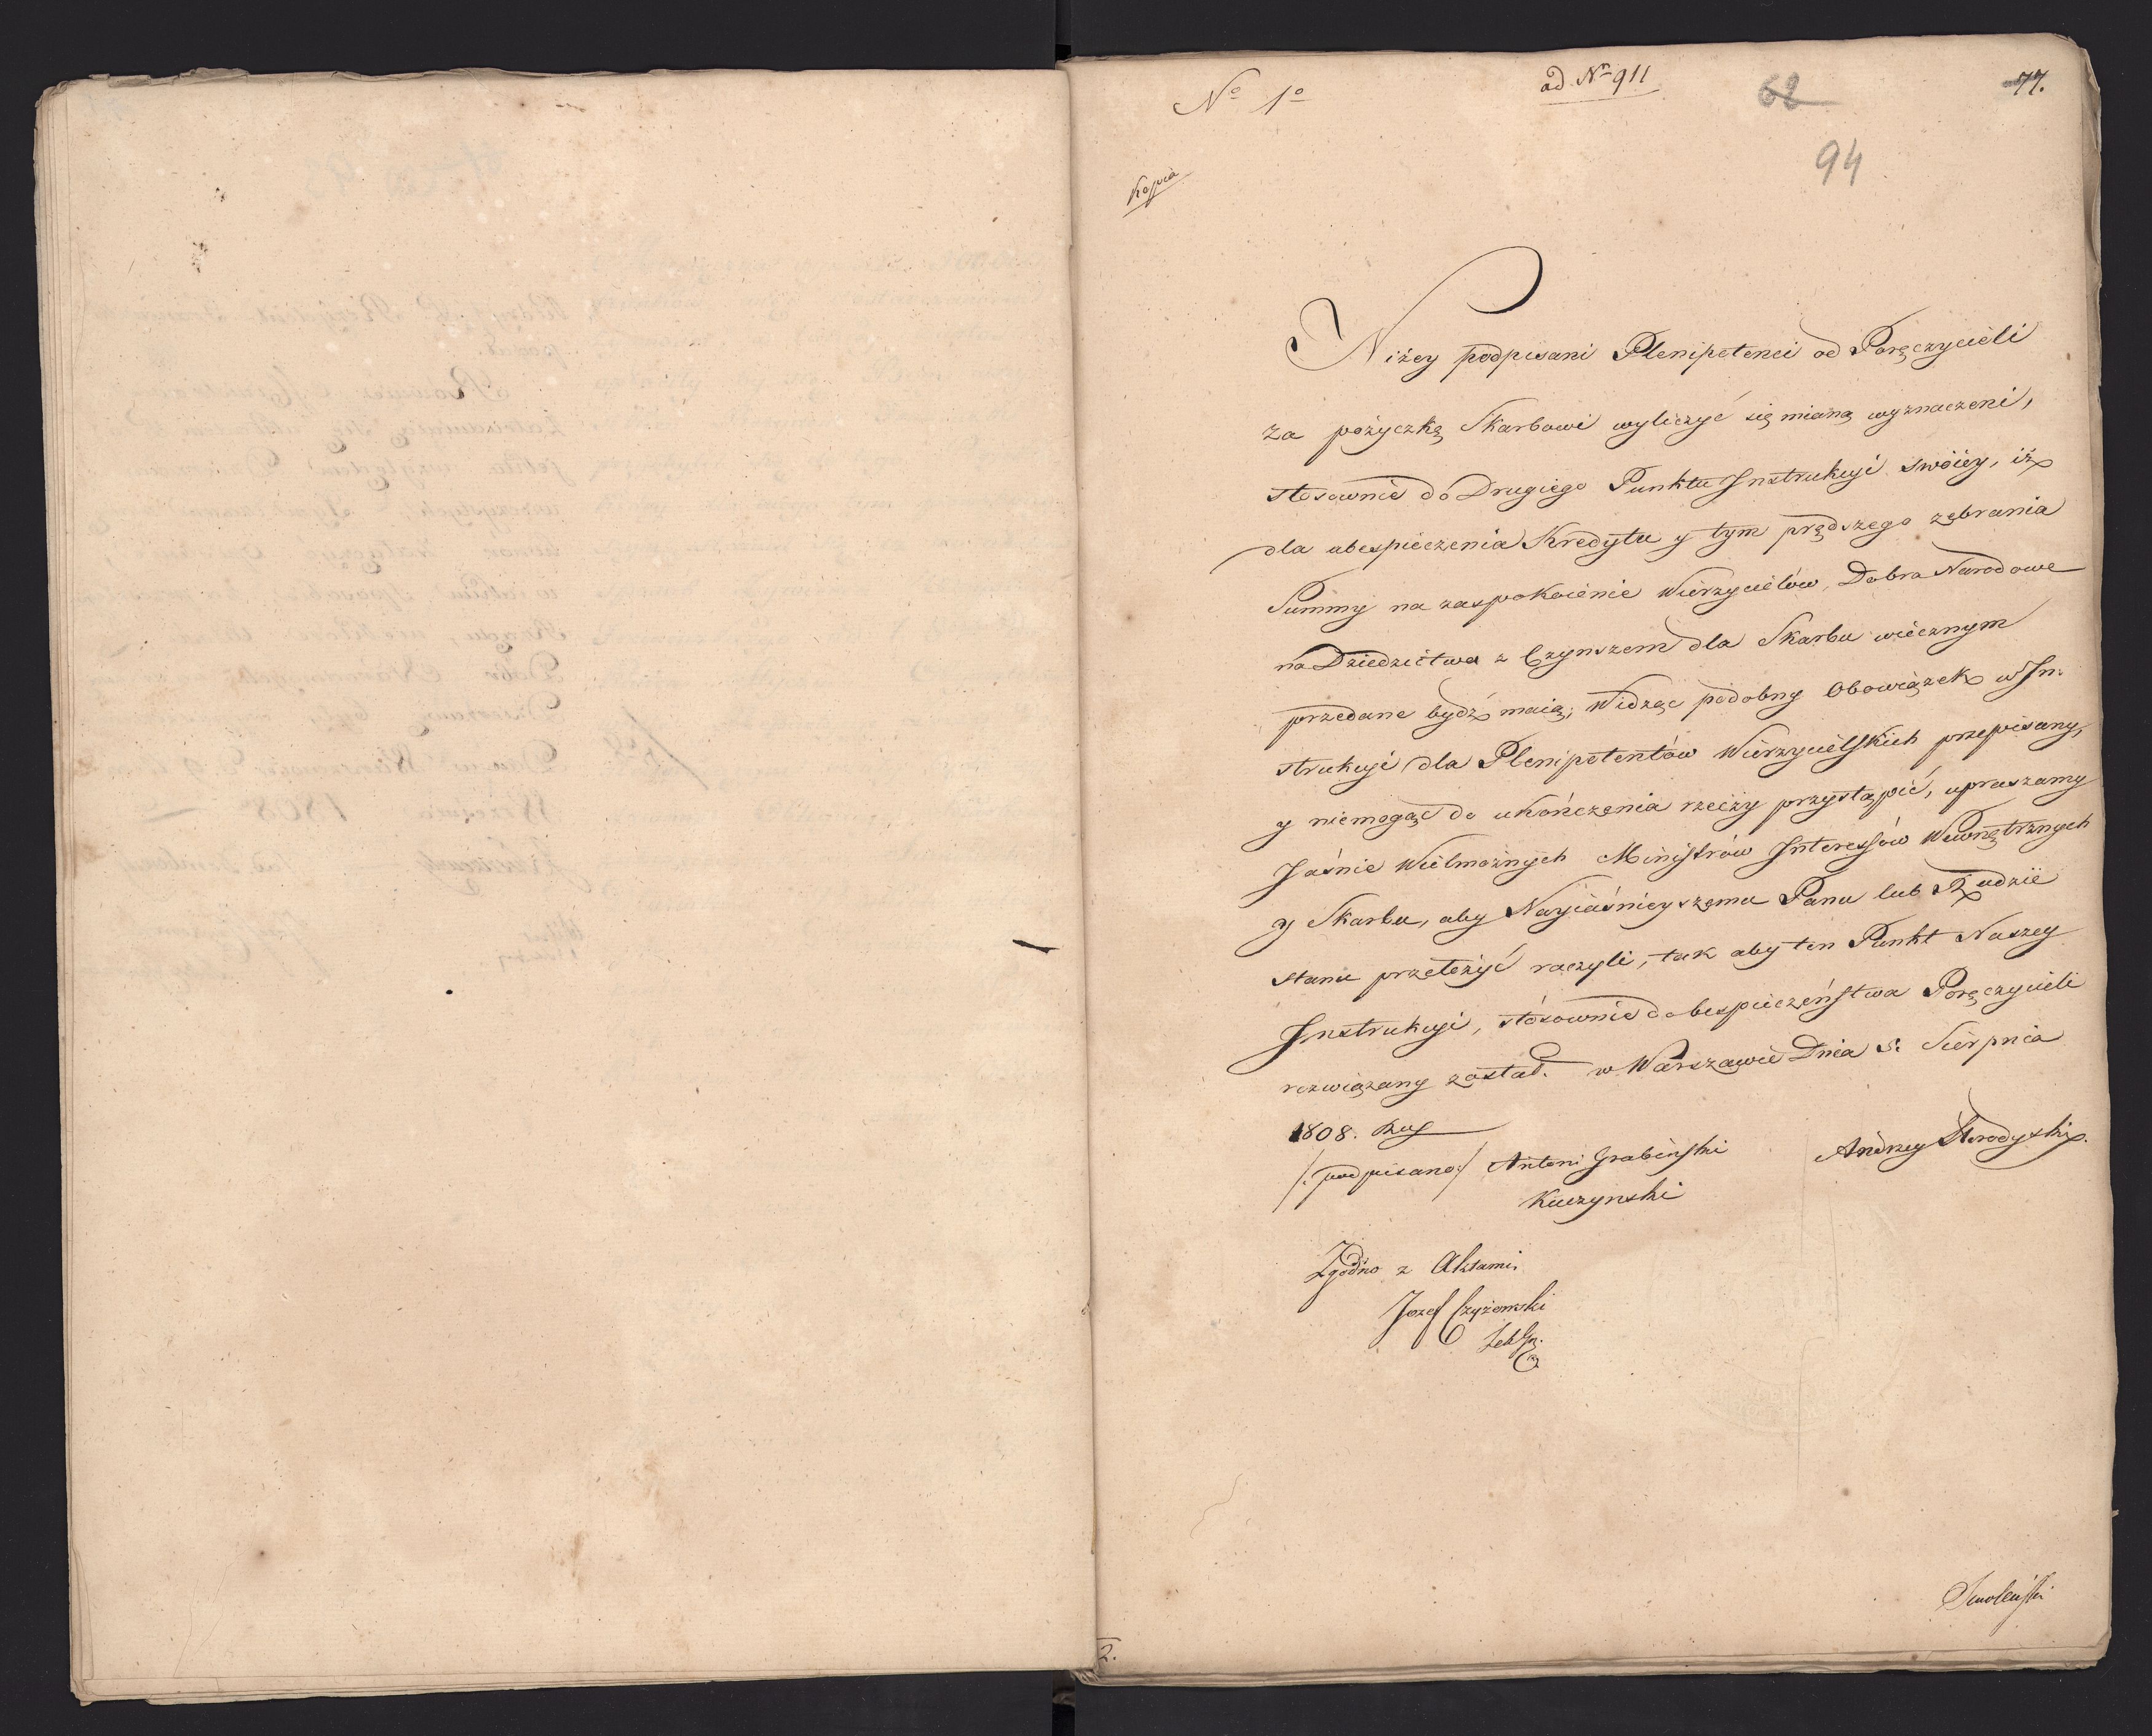 No 1o
ad Nr 911
62
77.
94
Kopia
Niżey podpisani Plenipotenci od Poręczycieli
za pożyczkę Skarbowi wyliczyć się mianą wyznaczeni,
stosownie do Drugiego Punktu Instrukcyi swoiey, iż
dla ubespieczenia Kredytu y tym prędszego zebrania
Summy na zaspokoienie Wierzycielów, Dobra Narodowe
na Dziedzictwa z Czynszem dla Skarbu wiecznym
przedane bydź maią; Widząc podobny Obowiązek w In-
strukcyi dla Plenipotentów Wierzycielskich przepisany,
y niemogąc do ukończenia rzeczy przystąpić, upraszamy
Jaśnie Wielmożnych Ministrów Interessów Wewnętrznych
y Skarbu, aby Nayiaśnieyszemu Panu lub Radzie
Stanu przełożyć raczyli, tak aby ten Punkt Naszey
Instrukcyi, stosownie do bespieczeństwa Poręczycieli
rozwiązany został. w Warszawie Dnia 5. Sierpnia
1808. Ruz
/: podpisano:/ Antoni Grabiński Andrzey Horodyski.
Kuczynski
Zgodno z Aktami.
Jozef Czyżewski
Sek Jn.
Smoleński
2.